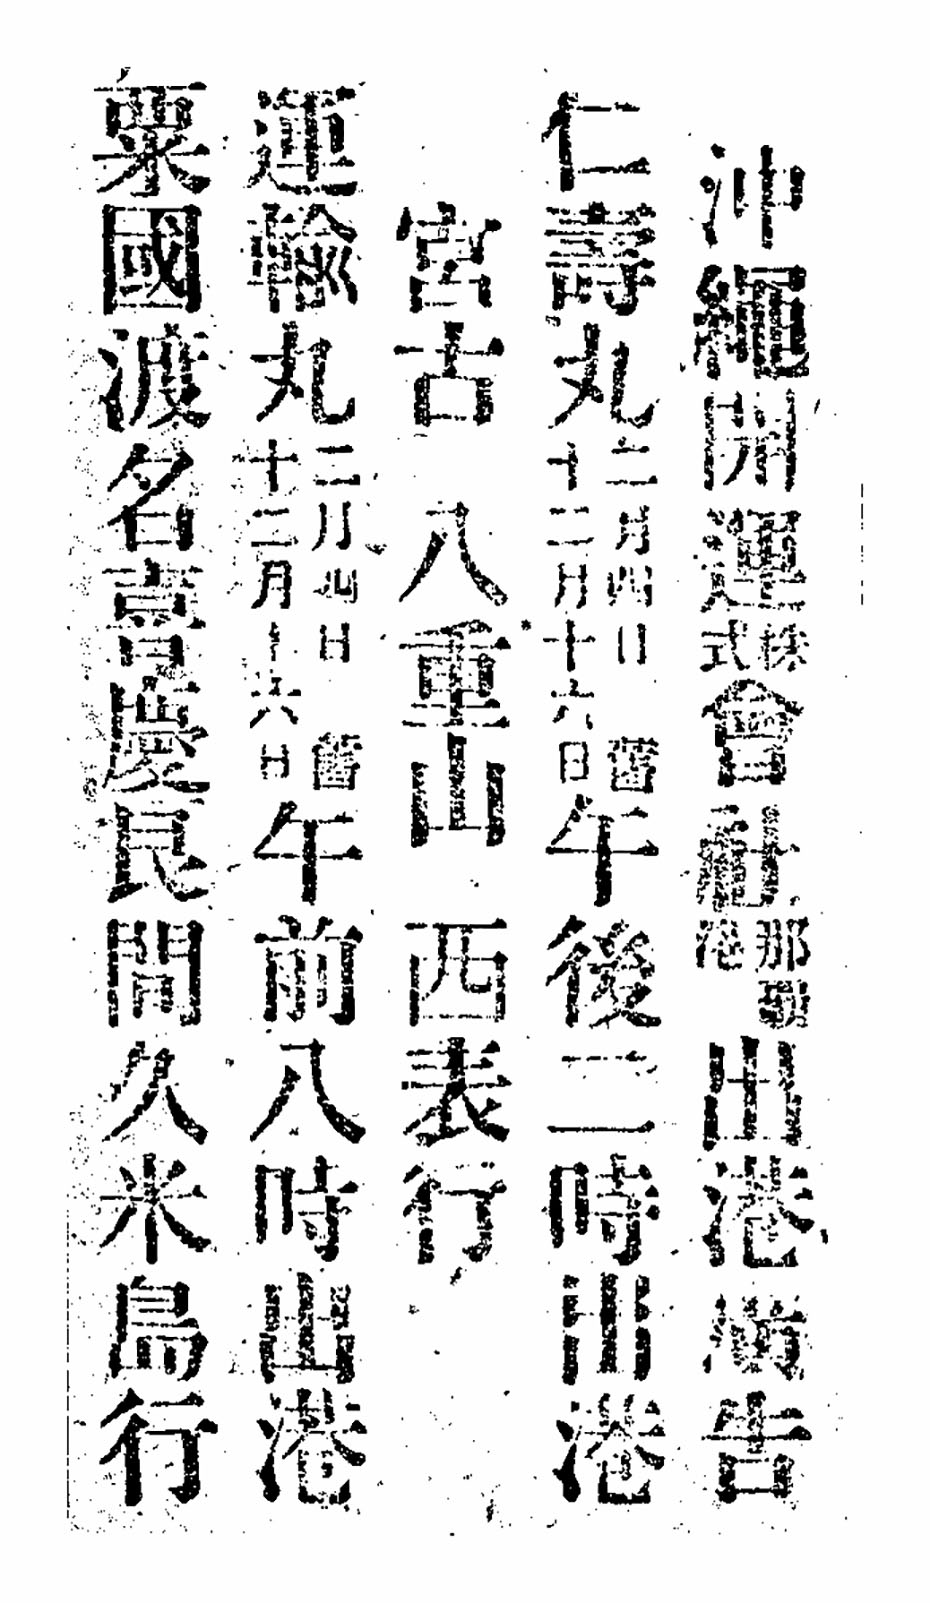 沖繩開運株式會社那覇出港廣告
仁壽丸二月四日舊十二月十六日午後二時出港
宮古 八重山 西表行
運輸丸二月四日舊十二月十六日午前八時出港
粟國渡名喜慶良間久米島行